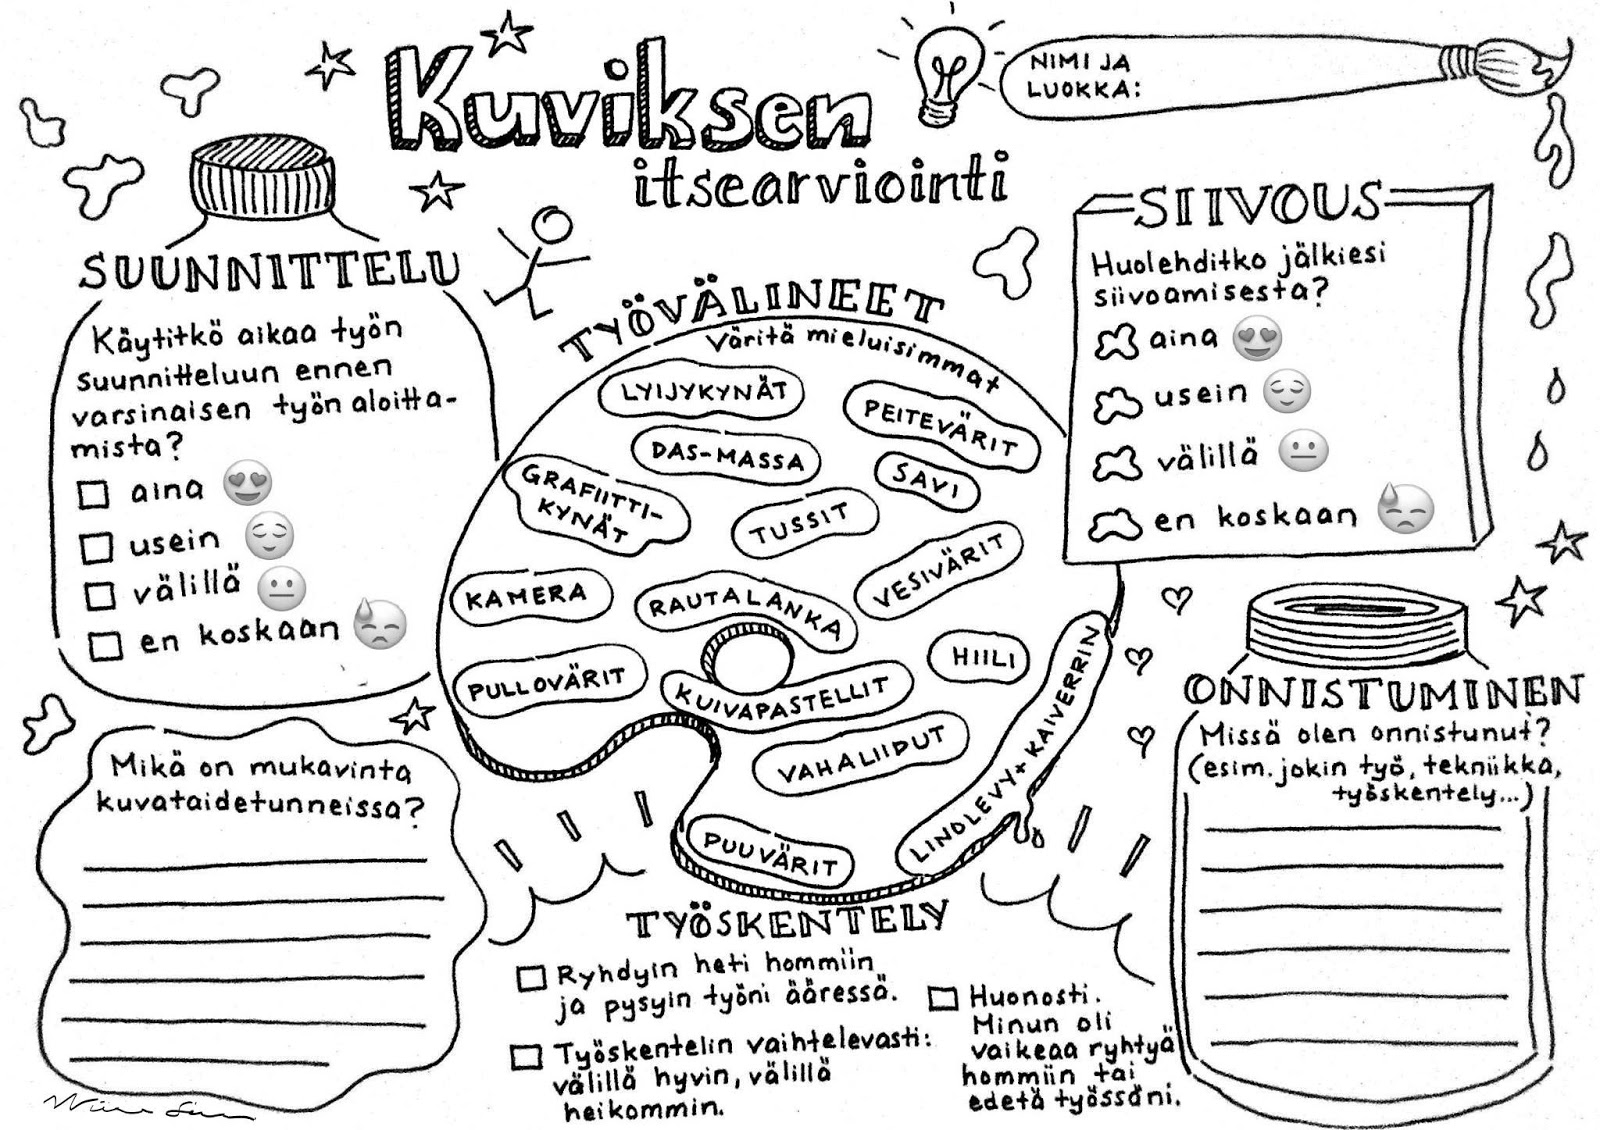 Kuviksen
itsearviointi
NIMI JA
LUOKKA:
SUUNNITTELU
Käytitkö aikaa työn
suunnitteluun ennen
varsinaisen työn aloitta-
mista?
aina
usein
välillä
en koskaan
TYÖVÄLINEET
Väritä mieluisimmat
LYIJYKYNÄT
PEITEVÄRIT
DAS-MASSA
SAVI
GRAFIITTI-
KYNÄT
TUSSIT
VESIVÄRIT
KAMERA
RAUTALANKA
HIILI
PULLOVÄRIT
KUIVAPASTELLIT
VAHALIIDUT
LINOLEVY+KAIVERRIN
PUUVÄRIT
SIIVOUS
Huolehditko jälkiesi
siivoamisesta?
aina
usein
välillä
en koskaan
Mikä on mukavinta
kuvataidetunneissa?
TYÖSKENTELY
Ryhdyin heti hommiin
ja pysyin työni ääressä.
Työskentelin vaihtelevasti:
välillä hyvin, välillä
heikommin.
Huonosti.
Minun oli
vaikeaa ryhtyä
hommiin tai
edetä työssäni.
ONNISTUMINEN
Missä olen onnistunut?
(esim. jokin työ, tekniikka,
työskentely...)